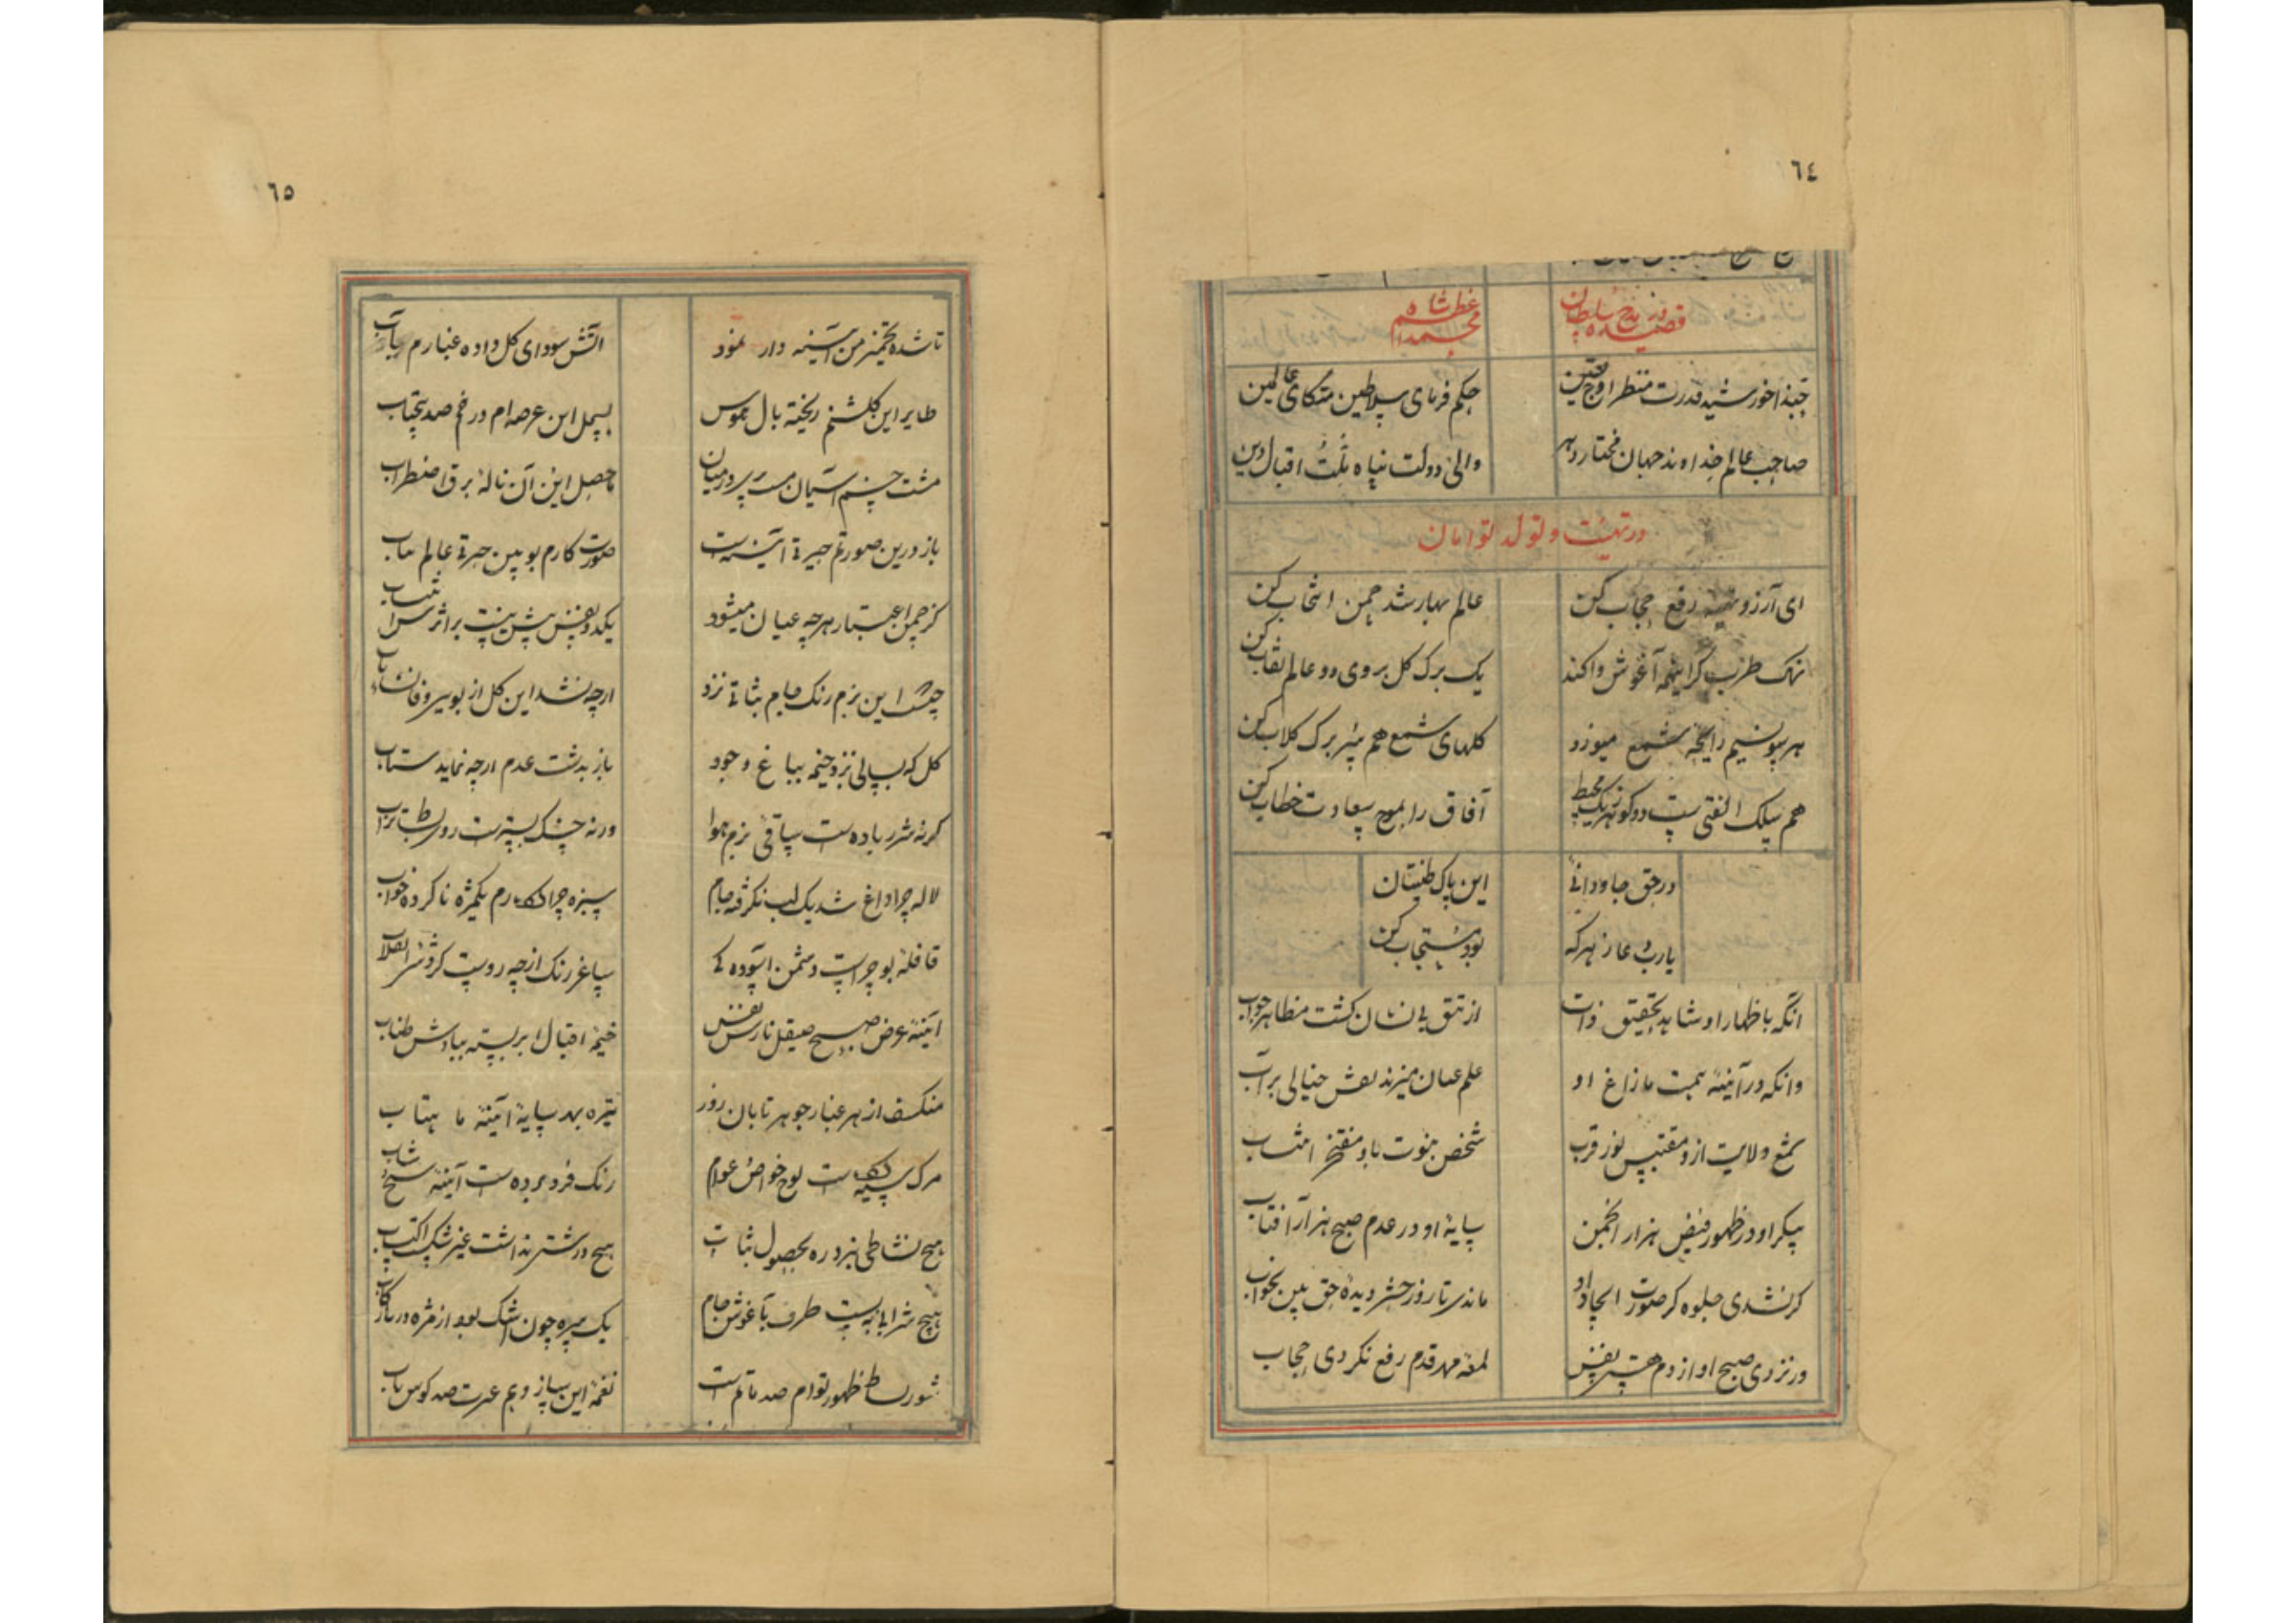 ٦٤
قصیده در مدح سلطان محمد اعظم شاه
حبذا خورشید قدرت منظر اوج یقین
حکم فرمای سلاطین متکای عالمین
صاحب عالم خداوند جهان مختار دهر
والی دولت پناه ملت اقبال دین
در تهنیت و تولد توامان
ای آرزو تهیه رفع حجاب کن
عالم بهار شد چمن انتخاب کن
نهک طرب گراینمه آغوش وا کند
یک برک کل بروی دو عالم نقاب کن
هر سو نسیم رایحه شمع میوزد
کلهای شمع هم سر برک کلاب کن
هم سلک الفتی ست دو کوهر یک محیط
آفاق را بموج سعادت خطاب کن
در حق جاودانی
این پاک طینتان
یارب دعا ز هر که
بود مستجاب کن
آنکه باظهار او شاهد تحقیق ذات
از تتق بی نشان کشت مظاهر جواب
وانکه در آینه همت مازاغ او
علم عیان میزند نقش خیالی بر آب
شمع ولایت ازو مقتبس نور قرب
شخص نبوت باو مفتخر انتساب
پیکر او در ظهور فیض هزار انجمن
سایه او در عدم صبح هزار آفتاب
کر نشدی جلوه کر صورت ایجاد او
ماندی تا روز حشر دیده حق بین بخواب
ور نزدی صبح او از دم هستی نفس
لمعه مهر قدم رفع نکردی حجاب
٦٥
تا شده تخمیر من آینه دار نمود
آتش سودای کل داده غبارم بآب
طایر این کلشنم ریخته بال هوس
بسمل این عرصه ام در خم صد پیچتاب
مشت خسم آسمان مسـ پرور میان
ماحصل این آن ناله برق اضطراب
باز درین صورتم حیرت آینه است
صورت کارم بو بین حیرتی عالم مآب
کز چمن اعتبار هر چه عیان میشود
یکدو نفس پیش نیست بر اثرش اشتاب
چیست این بزم رنک جام ثباتی نزد
ارچه نشد این کل از بوی وفا نشأیاب
کل که بسالی نزد خیمه بباغ وجود
باز بدشت عدم ارچه نماید شتاب
کرنه شرر باده ست ساقی بزم هوا
ورنه خسک بستر ست روی بساط تراب
لاله چرا داغ شد یک لب نکرفته جام
سبزه چرا کرد رم یکمژه ناکرده خواب
قافله بو چراست دشمن آسوده کی
ساغر رنک از چه روست کردش انقلاب
آینه عرض صبح صیقل تارش نفس
خیمه اقبال ابر بسته ببادش طناب
منکسف از هر غبار جوهر تابان روز
تیره بهر سایه آینه ماهتاب
مرک سیه کرده ست لوح خواص عوام
رنک فرو برده ست آینه شیخ شاب
هیچ نشاطی نبرد ره بحصول ثبات
هیچ درشتی نداشت غیر شکست اکتساب
هیچ شرابی نه بست طرف بآغوش جام
یک سره چون اشک بود از مژه در بارکاب
شور بساط ظهور توام صد ماتم است
نغمه این ساز وهم عبرت صد کوس باب